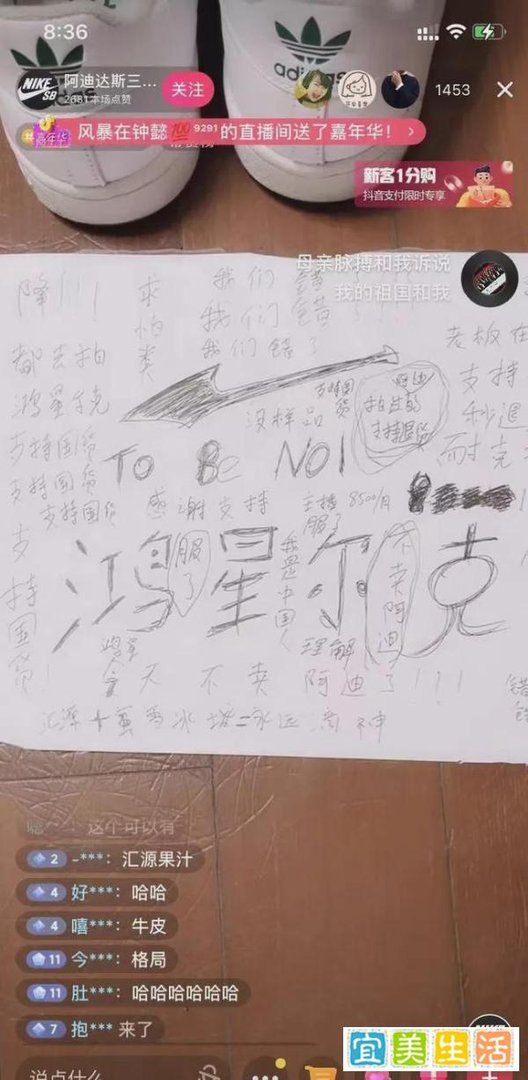 8:36
adidas
adidas
NIKE SB
阿迪达斯三...
2681本场点赞
关注
1453
嘉年华
风暴在钟懿💯9291的直播间送了嘉年华！
新客1分购
抖音支付限时专享
母亲脉搏和我诉说
我的祖国和我
降！！！
求
怕
类
我们错了
我们错了
我们错了
都去拍
鸿星克
没样品
支持国货
阿迪
支持退货
老板在
支持
秒退
耐克
TO Be NO1
支持国货
支持国货
支持国货
感谢支持
主持8500/月
服了
支持国货！
鸿星尔克
服了
我是中国人
不卖阿迪
理解
鸿星
今天不卖阿迪了！！！
汇源+蜜雪冰城=永远滴神
嗯～：这个可以有
2 -***：汇源果汁
4 好***：哈哈
4 嘻***：牛皮
11 今***：格局
11 肚***：哈哈哈哈哈哈
7 抱*** 来了
说点什么
宜美生活